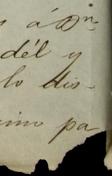 s á Dn
dél y
lo dis-
imo pa